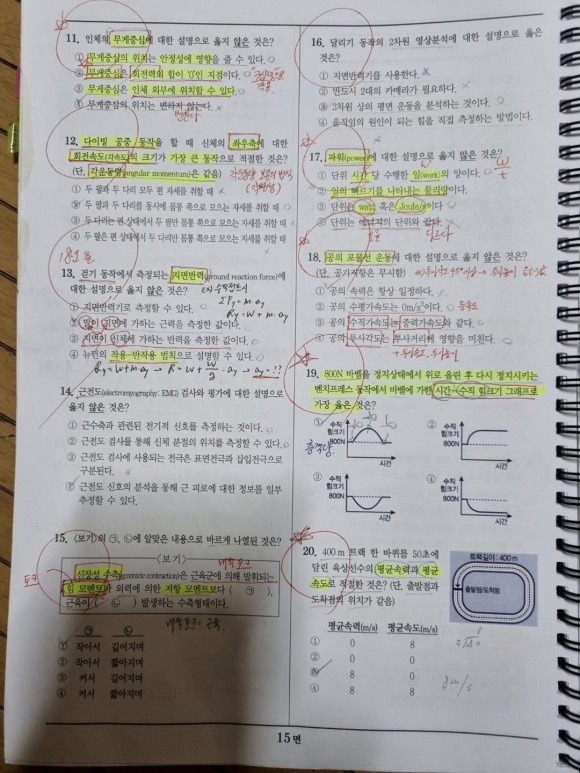 11. 인체의 무게중심에 대한 설명으로 옳지 않은 것은?
① 무게중심의 위치는 안정성에 영향을 줄 수 있다.
② 무게중심은 회전력의 합이 '0'인 지점이다.
③ 무게중심은 인체 외부에 위치할 수 있다.
④ 무게중심의 위치는 변하지 않는다.
변한다
12. 다이빙 공중 동작을 할 때 신체의 좌우축에 대한
회전속도(각속도)의 크기가 가장 큰 동작으로 적절한 것은?
(단, 각운동량(angular momentum)은 같음)
① 두 팔과 두 다리 모두 편 자세를 취할 때
② 두 팔과 두 다리를 동시에 몸통 쪽으로 모으는 자세를 취할 때
③ 두 다리는 편 상태에서 두 팔만 몸통 쪽으로 모으는 자세를 취할 때
④ 두 팔은 편 상태에서 두 다리만 몸통 쪽으로 모으는 자세를 취할 때
13. 걷기 동작에서 측정되는 지면반력(ground reaction force)에
대한 설명으로 옳지 않은 것은?
① 지면반력기로 측정할 수 있다.
② 발이 지면에 가하는 근력을 측정한 값이다.
③ 지면이 신체에 가하는 반력을 측정한 값이다.
④ 뉴턴의 작용-반작용 법칙으로 설명할 수 있다.
14. 근전도(electromyography: EMG) 검사와 평가에 대한 설명으로
옳지 않은 것은?
① 근수축과 관련된 전기적 신호를 측정하는 것이다.
② 근전도 검사를 통해 신체 분절의 위치를 측정할 수 있다.
③ 근전도 검사에 사용되는 전극은 표면전극과 삽입전극으로
구분된다.
④ 근전도 신호의 분석을 통해 근 피로에 대한 정보를 일부
추정할 수 있다.
15. 〈보기〉의 ㉠, ㉡에 알맞은 내용으로 바르게 나열된 것은?
〈보기〉
신장성 수축(eccentric contraction)은 근육군에 의해 발휘되는
힘 모멘트가 외력에 의한 저항 모멘트보다 ( ㉠ ),
근육이 ( ㉡ ) 발생하는 수축형태이다.
㉠ ㉡
① 작아서 길어지며
② 작아서 짧아지며
③ 커서 길어지며
④ 커서 짧아지며
16. 달리기 동작의 2차원 영상분석에 대한 설명으로 옳은
것은?
① 지면반력기를 사용한다.
② 반드시 2대의 카메라가 필요하다.
③ 2차원 상의 평면 운동을 분석하는 것이다.
④ 움직임의 원인이 되는 힘을 직접 측정하는 방법이다.
17. 파워(power)에 대한 설명으로 옳지 않은 것은?
① 단위 시간 당 수행한 일(work)의 양이다.
② 일의 빠르기를 나타내는 물리량이다.
③ 단위는 watt 혹은 Joule/s이다
④ 단위는 에너지의 단위와 같다.
다르다
18. 공의 포물선 운동에 대한 설명으로 옳지 않은 것은?
(단, 공기저항은 무시함)
① 공의 속력은 항상 일정하다.
② 공의 수평가속도는 0m/s²이다.
③ 공의 수직가속도는 중력가속도와 같다.
④ 공의 투사각도는 투사거리에 영향을 미친다.
19. 800N 바벨을 정지상태에서 위로 올린 후 다시 정지시키는
벤치프레스 동작에서 바벨에 가한 시간-수직 힘크기 그래프로
가장 옳은 것은?
① 수직 힘크기 800N 시간
② 수직 힘크기 800N 시간
③ 수직 힘크기 800N 시간
④ 수직 힘크기 800N 시간
충격량
20. 400 m 트랙 한 바퀴를 50초에
달린 육상선수의 평균속력과 평균
속도로 적절한 것은? (단, 출발점과
도착점의 위치가 같음)
트랙길이: 400m
출발점/도착점
평균속력(m/s) 평균속도(m/s)
① 0 8
② 0 0
③ 8 0
④ 8 8
8m/s
15면